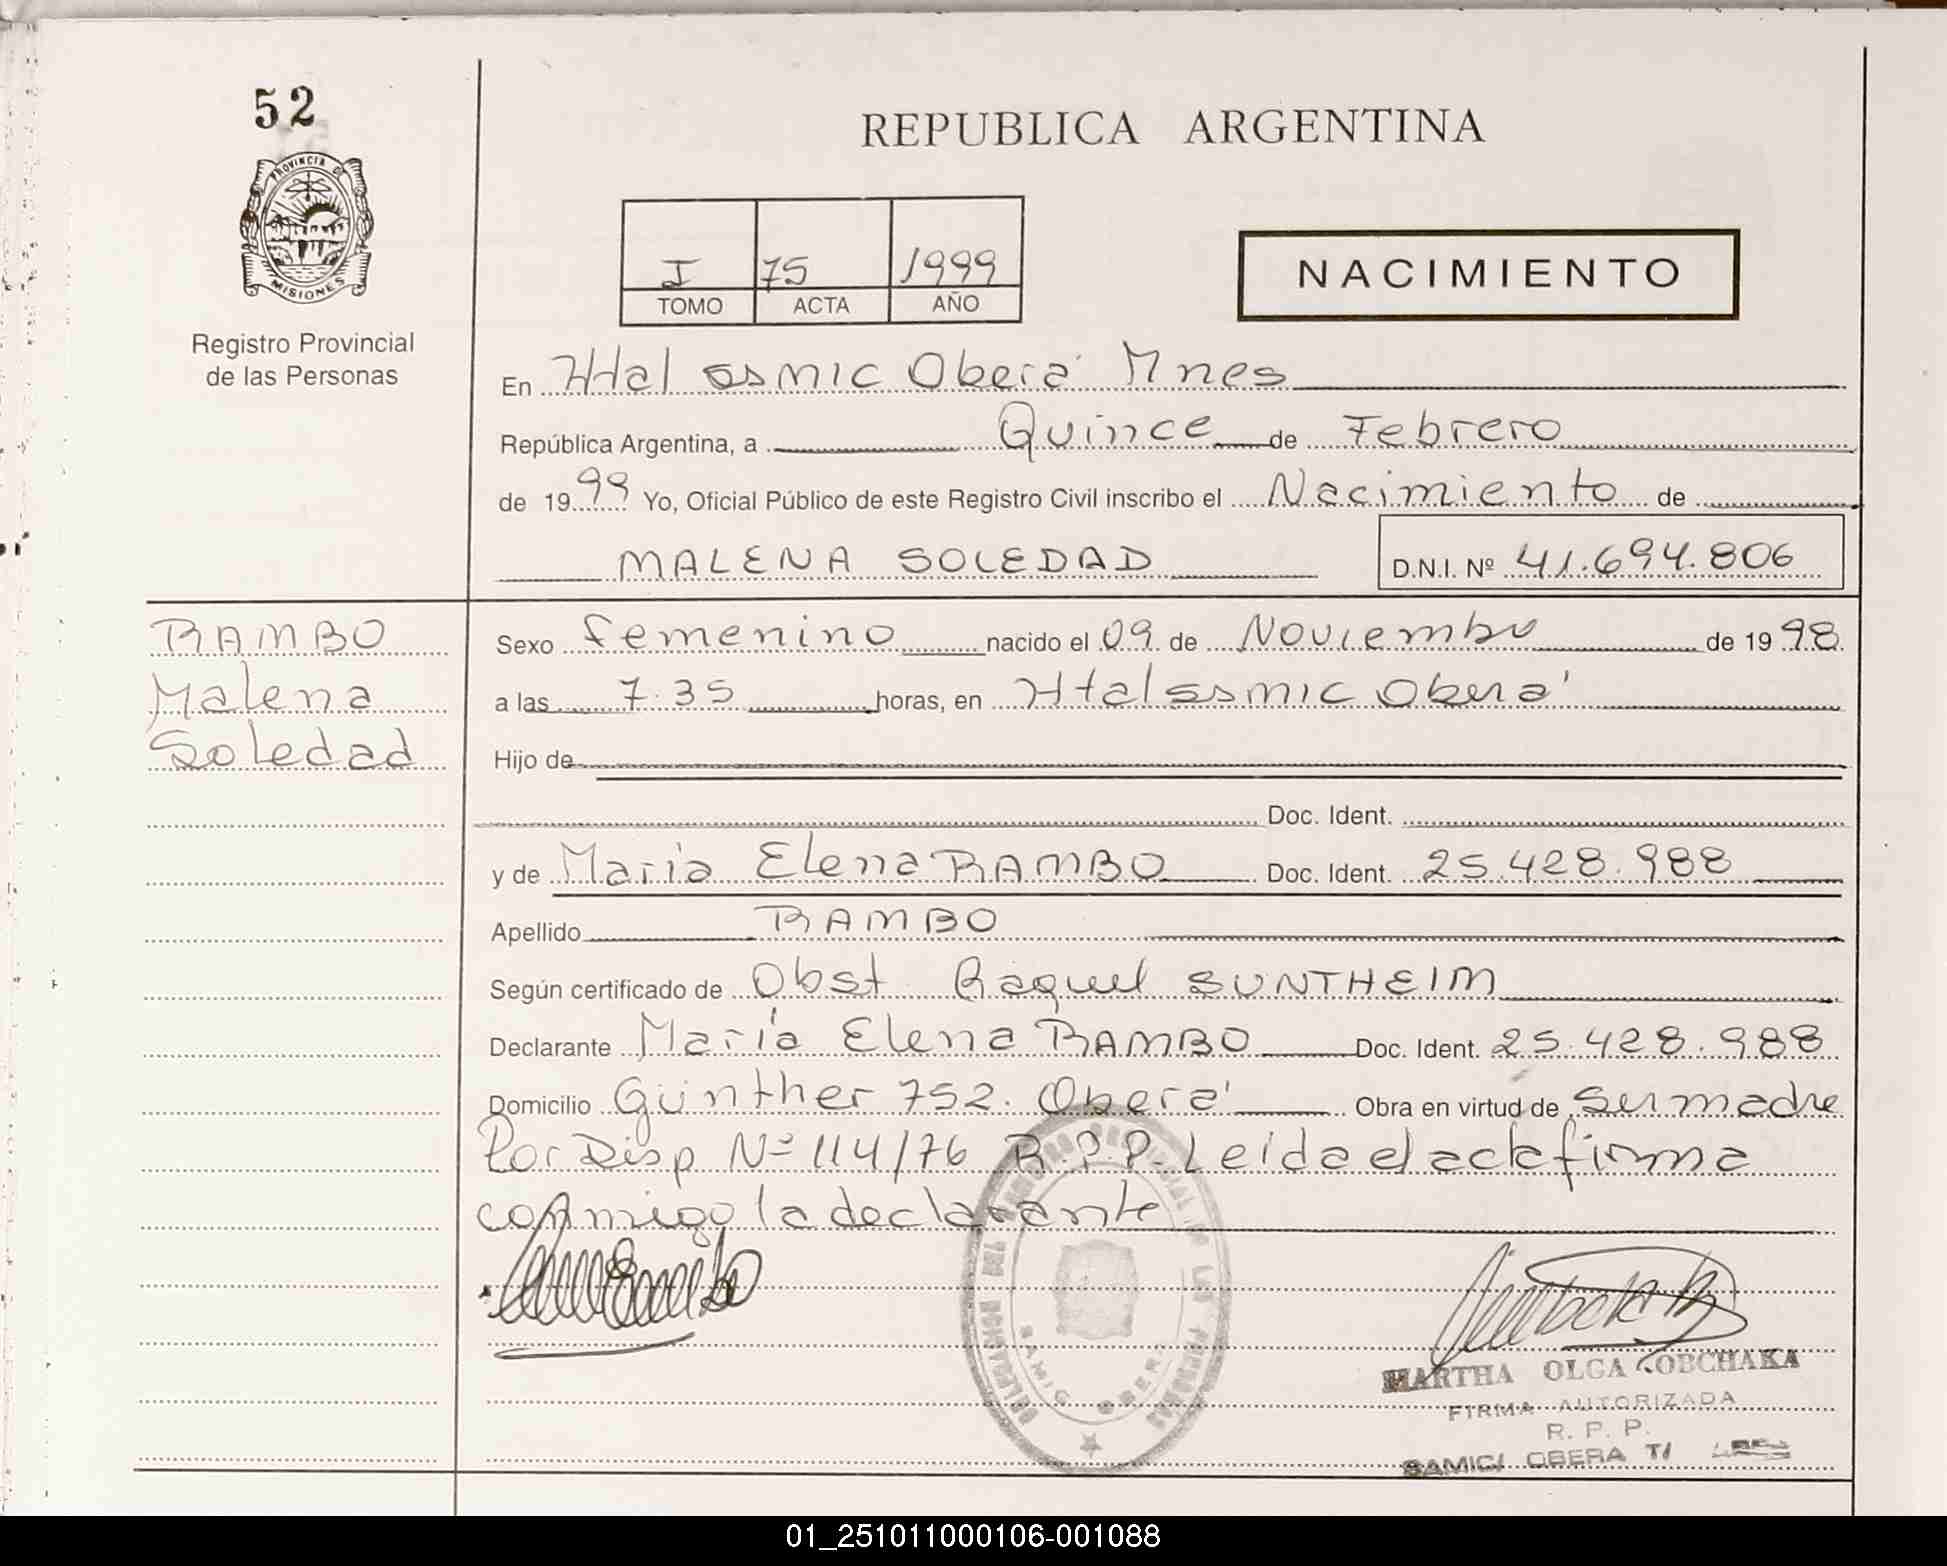 52
REPUBLICA ARGENTINA
PROVINCIA DE
MISIONES
Registro Provincial
de las Personas
I 75 1999
TOMO ACTA AÑO
NACIMIENTO
En Htal ssmic Oberá Mnes
República Argentina, a Quince de Febrero
de 1999 Yo, Oficial Público de este Registro Civil inscribo el Nacimiento de
MALENA SOLEDAD D.N.I. Nº 41.694.806
RAMBO
Malena
Soledad
Sexo femenino nacido el 09 de Noviembre de 1998
a las 7.35 horas, en Htal ssmic Oberá
Hijo de
Doc. Ident.
y de María Elena RAMBO Doc. Ident. 25.428.988
Apellido RAMBO
Según certificado de Obst Raquel SUNTHEIM
Declarante María Elena RAMBO Doc. Ident. 25.428.988
Domicilio Günther 752. Oberá Obra en virtud de ser madre
Por Disp Nº 114/76 R.P.P. Leída el acta firma
conmigo la declarante
DELEGACION DEL REGISTRO PROVINCIAL DE LAS PERSONAS
SAMIC OBERA
MARTHA OLGA OBCHAKA
FIRMA AUTORIZADA
R. P. P.
SAMIC/ OBERA
01_251011000106-001088